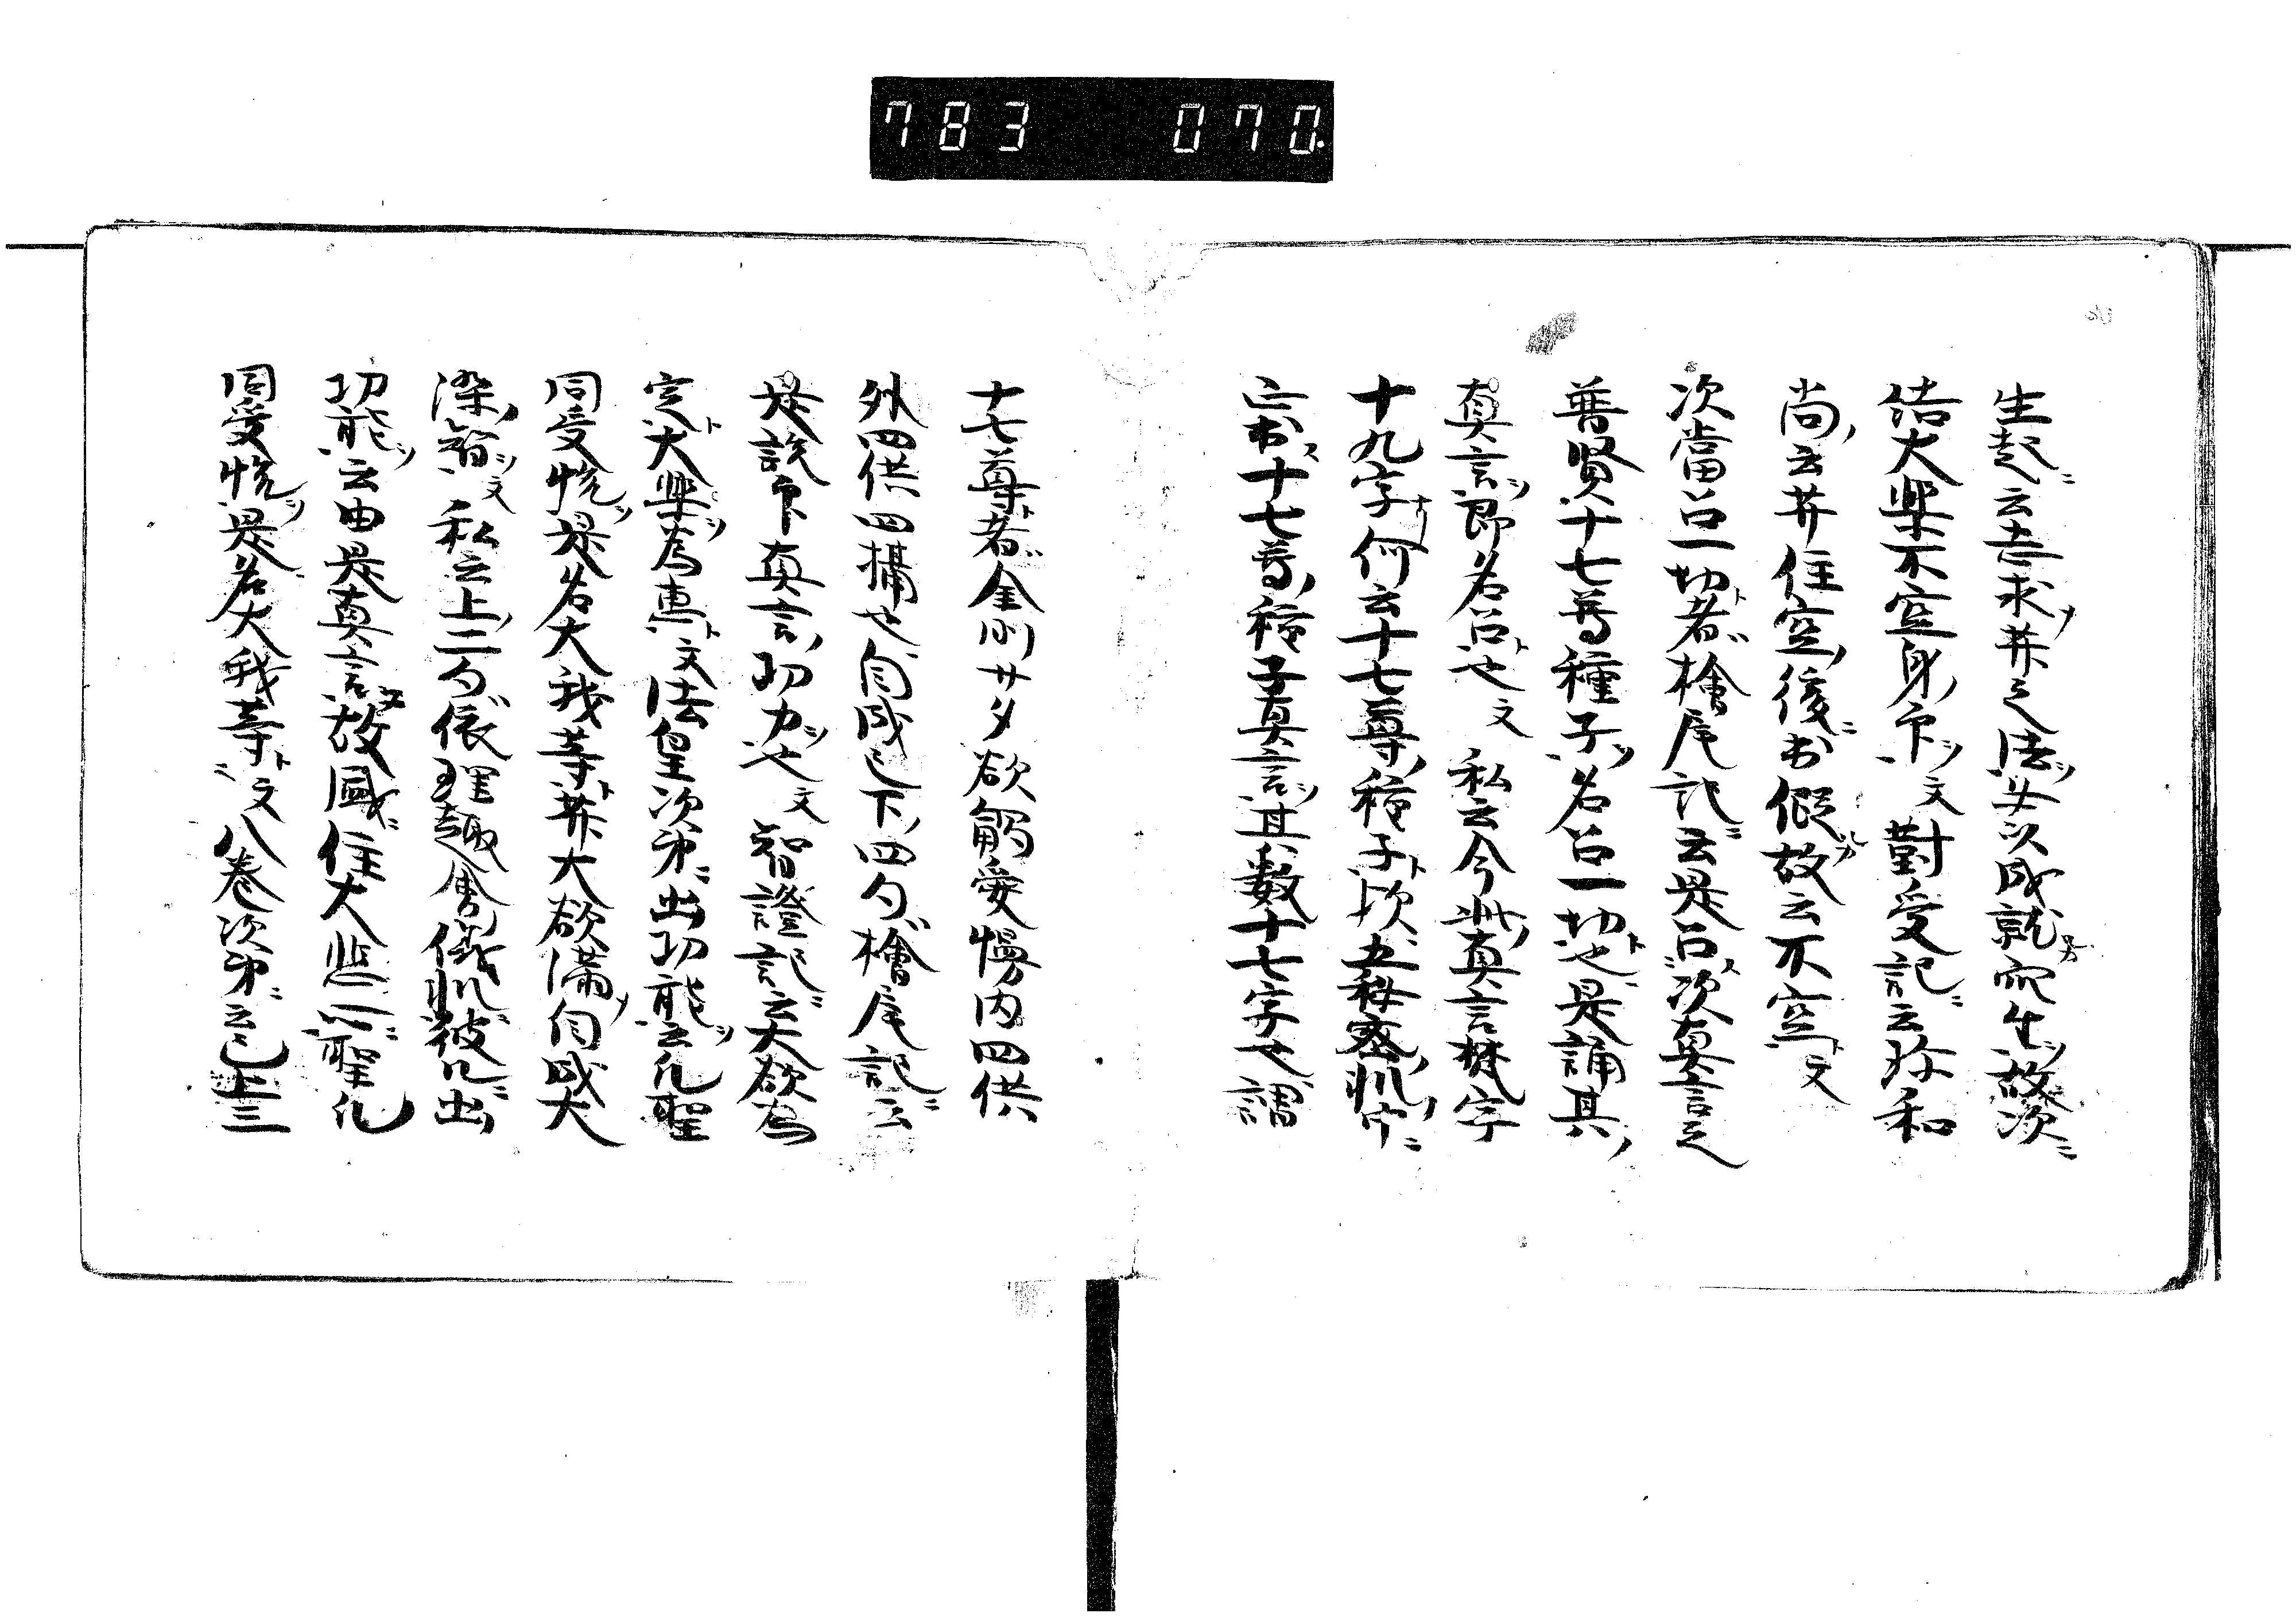 783 070
生起ニ云志求ノ菩提之法ソ以成就而生ソ故次ニ
結大樂不空身ノ印ソ文對受記ニ云珍和
尚ノ云菩薩住空ノ後ニ出假故云不空ト文
次當召一切ト者檜尾記ニ云是召次真言之
普賢ノ十七尊種子ソ名召一切ト也是誦其ノ
真言ソ即名召ト也文 私云今此ノ真言梵字
十九字ナリ何云十七尊ノ種子ト次五秘密ノ軌ノ中ニ
出ス十七尊ノ種子真言ソ其数十七字也謂
十七尊ト者金剛サタ欲觸愛慢内四供
外四供四攝也自成之下ノ四句檜尾記ニ云
是説印真言ノ功力ソ也文智證記ニ云大欲為
定ト大樂ソ為惠ト文法皇次第ニ出功能ソ云凡聖
同受悦ソ是名大我等ト菩薩大欲滿ノ自成大
染智ソ文私云上ノ二句依理趣會儀軌彼ニ出ノ
功能ソ云由是真言故速住大悲心ニ聖凡
同受悦ソ是名大我等ト文八卷次第ニ云已上三